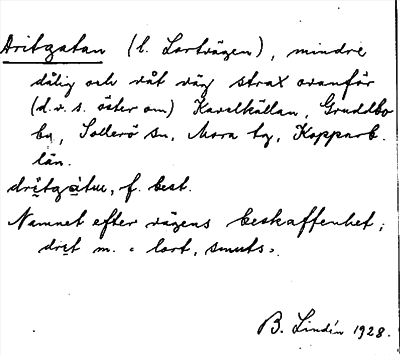 Dritgatan (l. Lortvägen), mindre
dålig och våt väg strax ovanför
(d.v.s. öster om) Kavelkällan, Gruddbo
by, Sollerö sn, Mora tg, Kopparb.
län.
f. best.
Namnet efter vägens beskaffenhet;
dret m. = lort, smuts.
B. Lindén 1928.